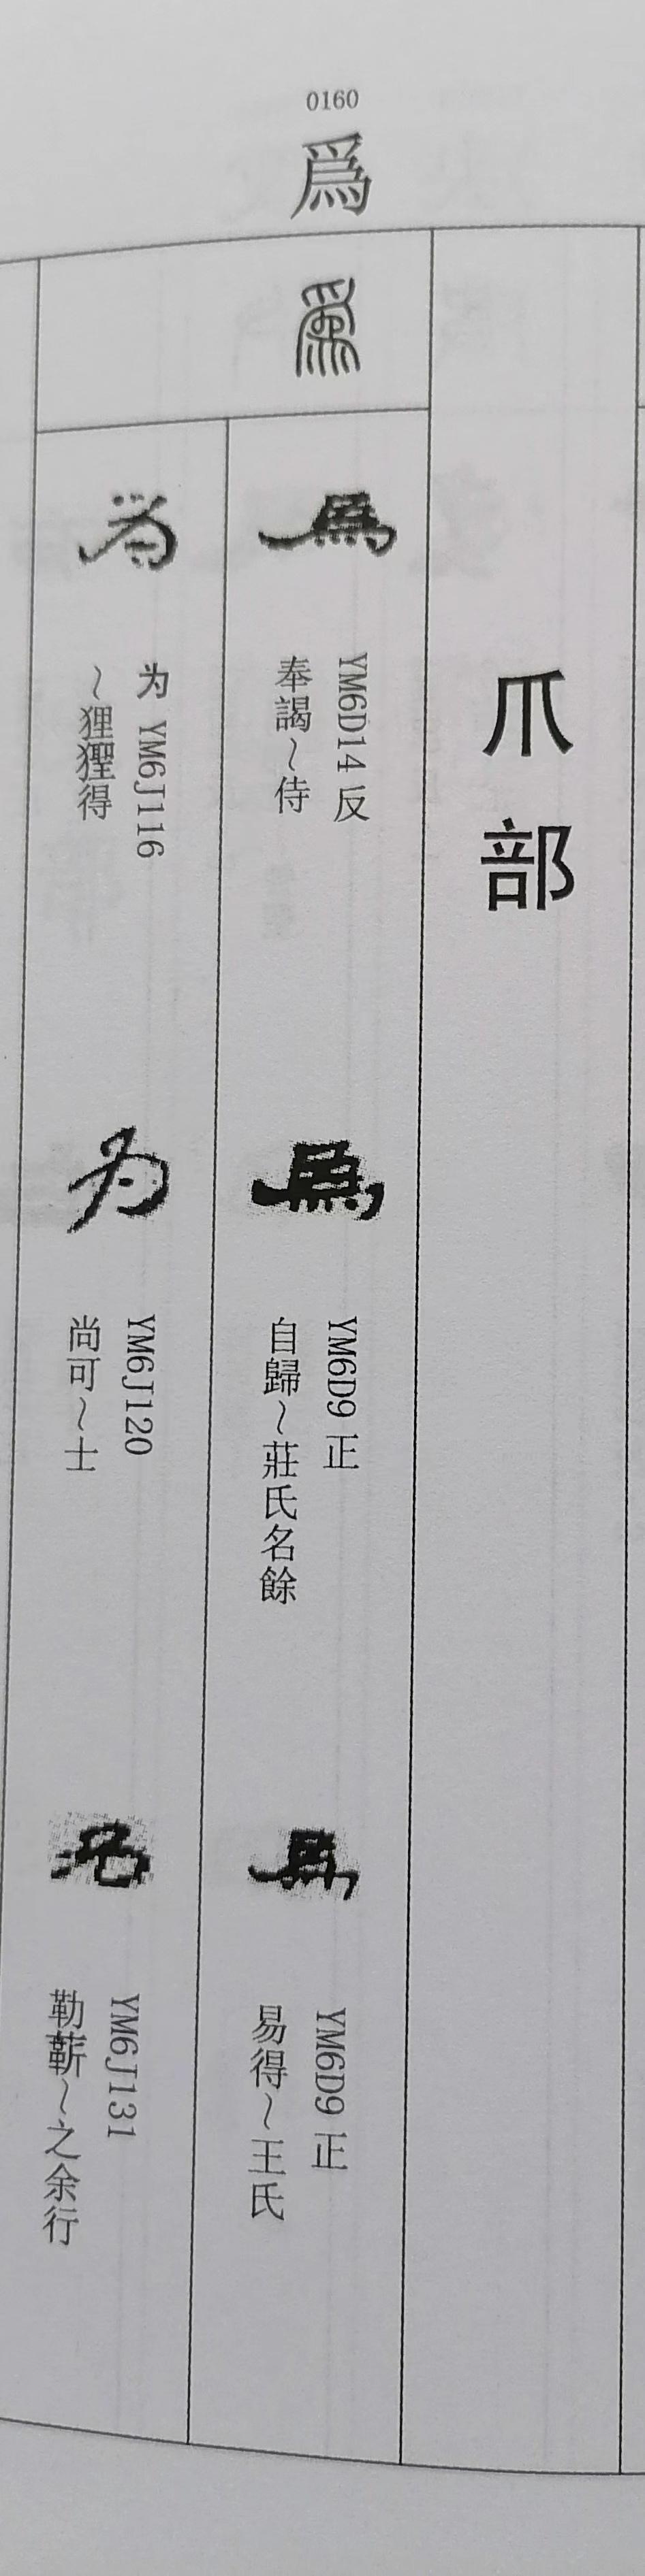 爪部
0160
爲
爲
爲
YM6D14 反
奉謁～侍
爲
YM6D9 正
自歸～莊氏名餘
爲
YM6D9 正
易得～王氏
为
为 YM6J116
～狸狸得
为
YM6J120
尚可～士
为
YM6J131
勒蘄～之余行